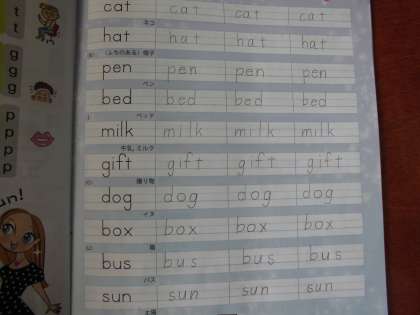 t
t
g
g
g
p
p
p
p
un!
cat cat cat cat
ネコ
hat hat hat hat
(ふちのある) 帽子
pen pen pen pen
ペン
bed bed bed bed
ベッド
milk milk milk milk
牛乳, ミルク
gift gift gift gift
贈り物
dog dog dog dog
イヌ
box box box box
箱
bus bus bus bus
バス
sun sun sun sun
太陽